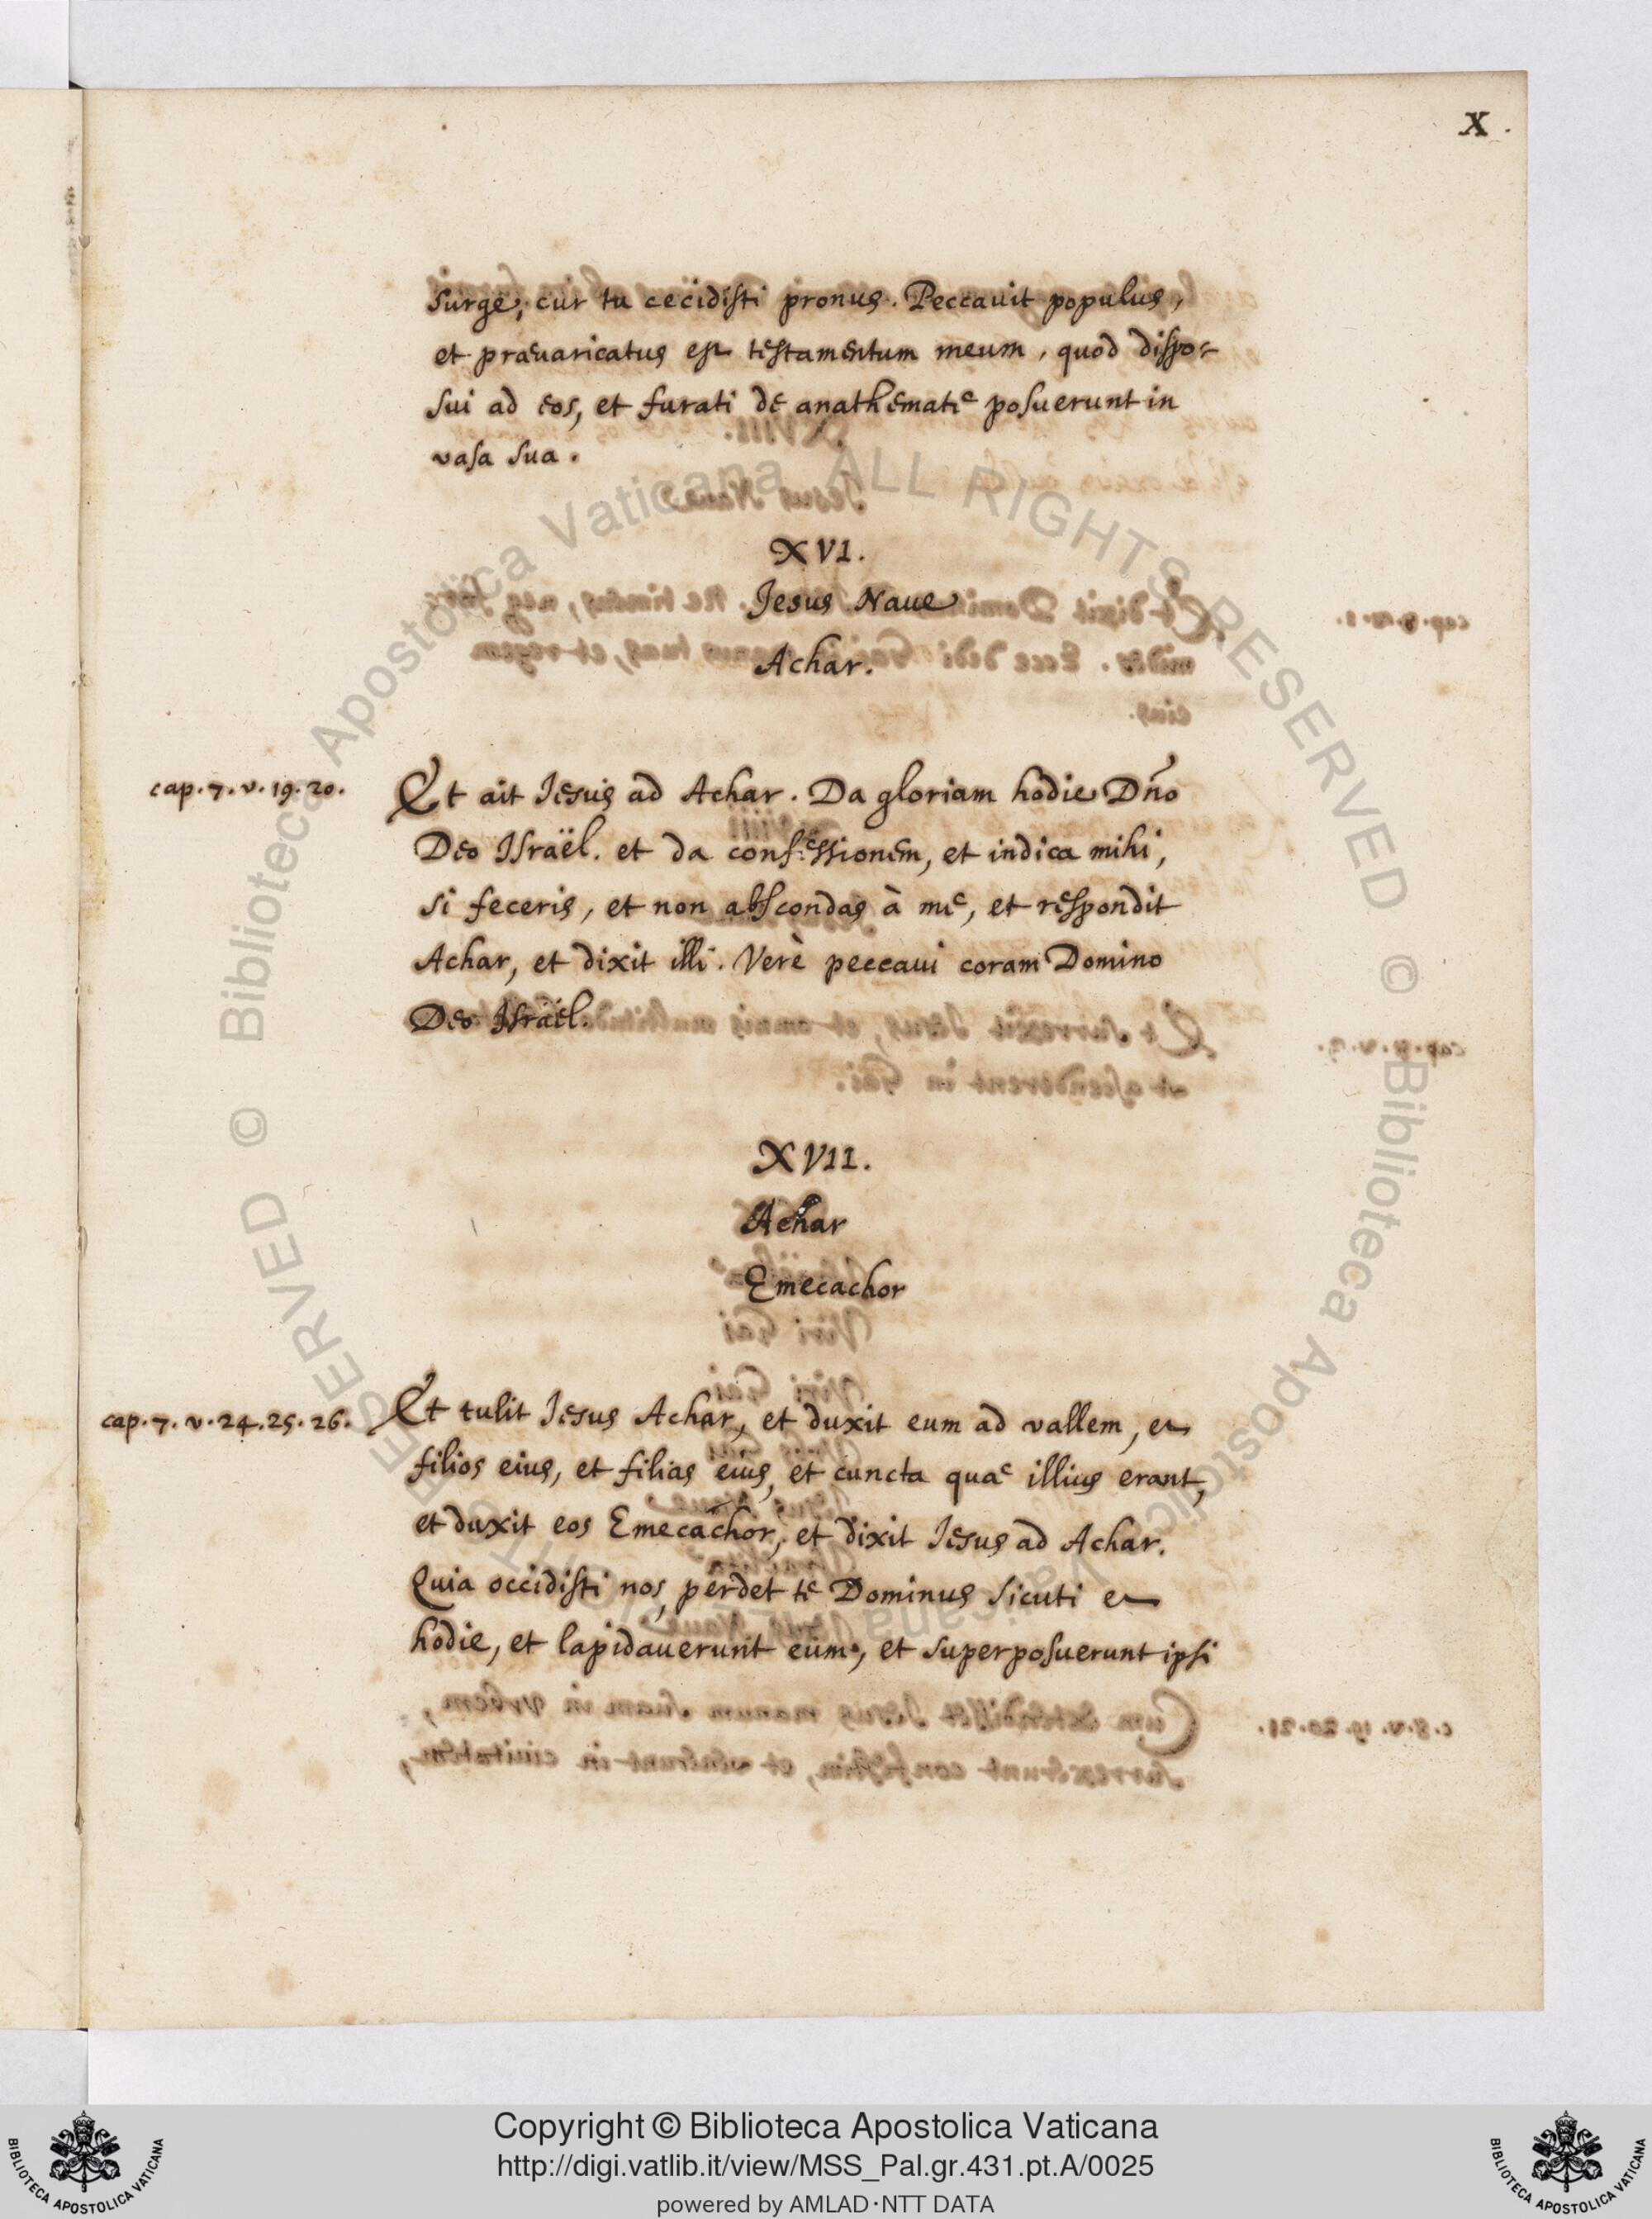 X.
surge, cur tu cecidisti pronus. Peccauit populus,
et præuaricatus est testamentum meum, quod dispo-
sui ad eos, et furati de anathemate posuerunt in
vasa sua.
XVI.
Jesus Naue
Achar.
cap. 7. v. 19. 20. Et ait Jesus ad Achar. Da gloriam hodie Dño
Deo Israël. et da confessionem, et indica mihi,
si feceris, et non abscondas à me, et respondit
Achar, et dixit illi. Verè peccaui coram Domino
Deo Israël.
XVII.
Achar
Emecachor
cap. 7. v. 24. 25. 26. Et tulit Jesus Achar, et duxit eum ad vallem, et
filios eius, et filias eius, et cuncta quae illius erant,
et duxit eos Emecachor, et dixit Jesus ad Achar.
Quia occidisti nos, perdet te Dominus sicuti et
hodie, et lapidauerunt eum, et superposuerunt ipsi
Copyright © Biblioteca Apostolica Vaticana
http://digi.vatlib.it/view/MSS_Pal.gr.431.pt.A/0025
powered by AMLAD·NTT DATA